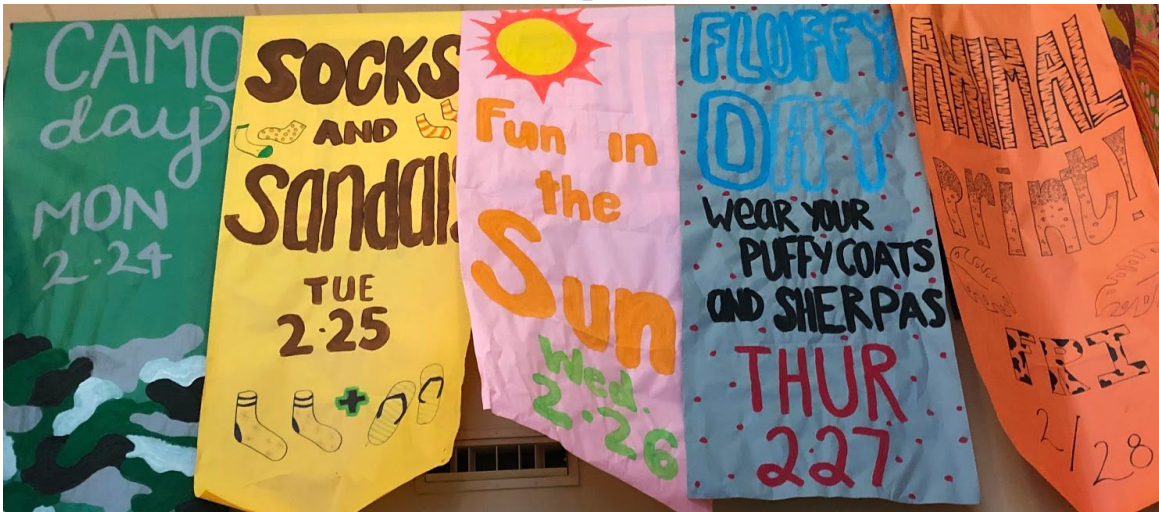 CAMO
day
MON
2.24
SOCKS
AND
Sandals
TUE
2.25
Fun in
the
Sun
Wed.
2.26
FLUFFY
DAY
WEAR YOUR
PUFFY COATS
AND SHERPAS
THUR
2.27
ANIMAL
print!
FRI
2/28